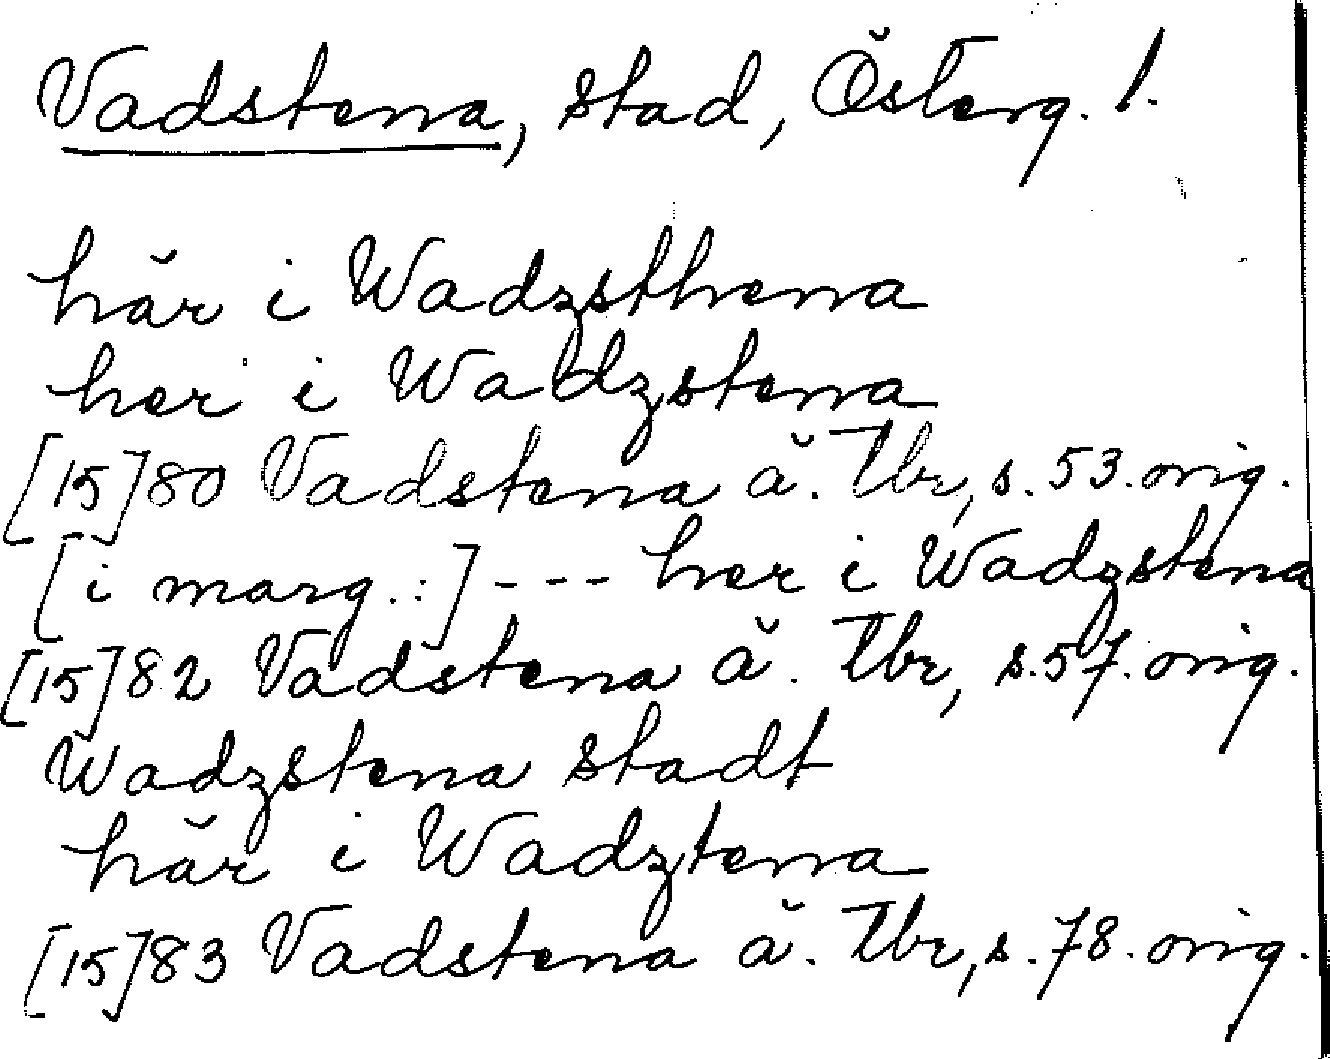 Vadstena, stad, Österg. l.
här i Wadzsthena
her i Wadzstena
[15]80 Vadstena ä. Tbr, s. 53. orig.
[i marg.:] --- her i Wadzstena
[15]82 Vadstena ä. Tbr, s. 57. orig.
Wadzstena stadt
här i Wadztena
[15]83 Vadstena ä. Tbr, s. 78. orig.